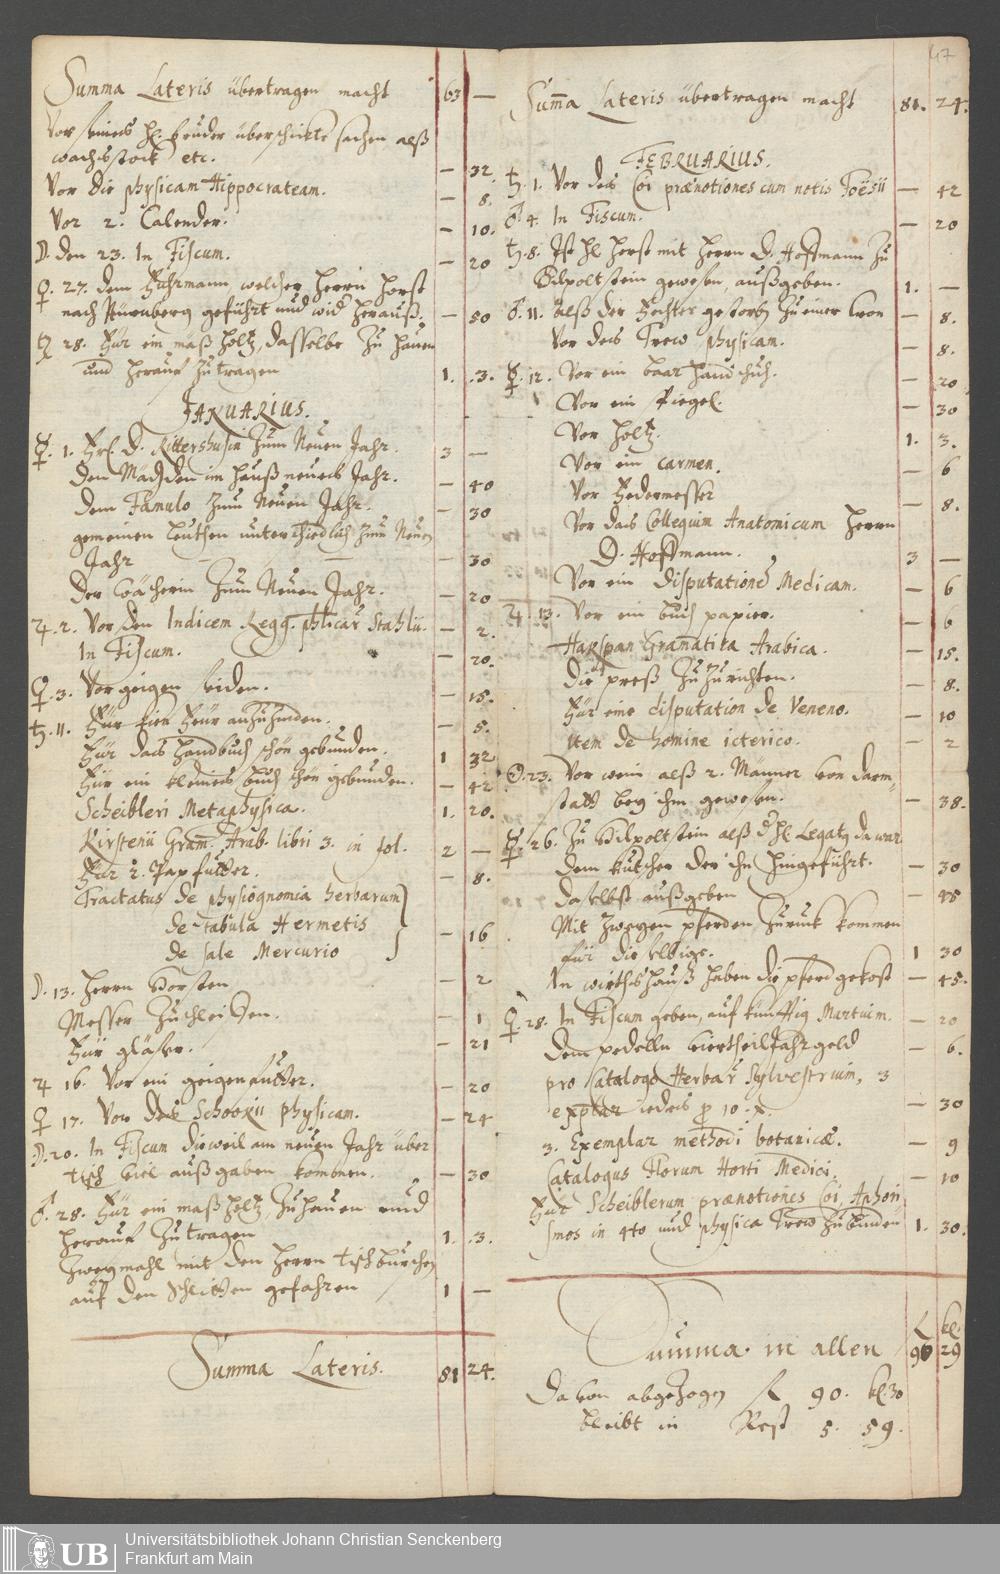 Summa Lateris übertragen macht 63 —
Vor seines H. bruder überschickte sachen alß
wachsstock etc. — 32.
Vor die physicam Hippocrateam. — 8.
Vor 2. Calender. — 10.
☽. den 23. In Fiscum. — 20
♀. 27. dem Fuhrmann, welcher Herrn Horst
nach Nürnberg geführt und wid herauß. — 50
♄ 28. Für ein maß holtz, dasselbe zu hauen
und herauf zu tragen 1. .3.
JANUARIUS.
☿. 1. D. Rittershusin zum Neuen Jahr. 3 —
Den Mägden im hauß neues Jahr. — 40
dem Famulo zum Neuen Jahr. — 30
gemeinen leuthen unterschiedlich zum Neuen
Jahr — 30
Der Köcherin zum Neuen Jahr. — 20
♃. 2. Vor den Indicem Regg. phlicar Stahlii. — 2.
In Fiscum. — 20.
♀. 3. Vor geigen seiden. — 15.
♄. 11. Für feur anzuzünden. — 5.
Für das handbuch schön gebunden. 1 32
Für ein kleines buch schön gebunden. — 42
Scheibleri Metaphysica. 1. 20.
Kirstenii Gram. Arab. libri 3. in fol. 2 —
Für 2. — 8.
Tractatus de physiognomia herbarum
de tabula Hermetis — 16
de sale Mercurio
☽. 13. Herrn Horsten — 2
Messer zu schleiffen. — 1
Für gläser. — 21
♃ 16. Vor ein geigenfutter. — 20
♀ 17. Vor des Schookii physicam. — 24
☽. 20. In Fiscum dieweil am neuen Jahr über
tisch viel außgaben kommen. — 30
♂. 28. Für ein maß holtz, zu hauen und
herauf zu tragen 1. .3.
Zweymahl mit den Herrn tischburschen
auf den schlitten gefahren 1 —
Summa Lateris. 81 24.
47
Summa Lateris übertragen macht 81. 24.
FEBRUARIUS.
♄. 1. Vor des Coi praenotiones cum notis Foësii — 42
♂. 4. In Fiscum. — 20
♄. 8. Ist H Horst mit Herrn D. Hoffmann zu
Hilpoltstein gewesen, außgeben. 1. —
♂. 11. Alß der Fechter gestorben zu einer Cron — 8.
Vor des Trew physicam. — 8.
☿. 12. Vor ein paar handschuh. — 20
Vor ein spiegel. — 30
Vor holtz. 1. 3.
Vor ein carmen. — 6
Vor Federmesser — 8.
Vor das Collegium Anatomicum Herrn
D. Hoffmann. 3 —
Vor ein disputatione Medicam. — 6
♃. 13. Vor ein buch papier. — 6
Haxspan Gramatika Arabica. — 15.
die preß zu zurichten. — 8.
Für eine disputation de Veneno. — 10
Item de homine icterico. — 2
☉. 23. Vor wein alß 2. Männer von Darm-
statt bey ihm gewesen. — 38.
☿. 26. Zu Hilpoltstein alß H. Legatg da war
dem kutscher der ihn hingeführt. — 30
daselbst außgeben — 48
Mit zweyen pferden zuruck kommen
für dieselbige. 1 30
In wirthshauß haben die pferd gekost — 45.
♀. 28. In Fiscum geben, auf künfftig Martium. — 20
dem pedelln viertheil Jahrgeld — 6.
pro Catalogo Herbar Sylvestrium, 3
explar iedes p 10. x. — 30
3. Exemplar methodi botanicæ. — 9
Catalogus Florum Horti Medici. — 10
Für Scheiblerum praenotiones Coi, Aphori
smos in 4to und physica Trew zu binden 1. 30.
Summa in allen 96 29
Davon abgezogen fl 90. 30
bleibt in Rest 5. 59.
Universitätsbibliothek Johann Christian Senckenberg
Frankfurt am Main
UB